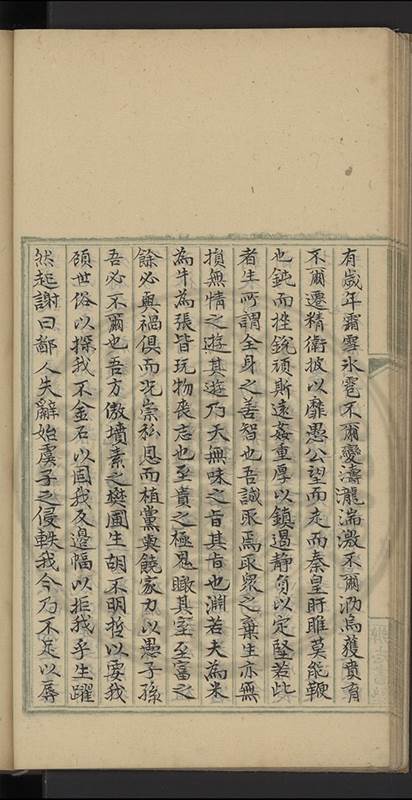 有歲年霜雪氷雹不爾變濤瀧湍激不爾泐烏獲賁育
不爾遷精衛披以靡愚公望而走而秦皇盱睢莫能鞭
也鈍而挫銳頑斯遠姦重厚以鎮遏靜貞以定堅若此
者生所謂全身之善智也吾誠取焉取衆之棄生亦無
損無情之遊其遊乃天無味之旨其旨也淵若夫為米
為牛為張皆玩物喪志也至貴之極鬼瞰其室至富之
餘必與禍俱而况崇私恩而植黨與饒家力以愚子孫
吾必不爾也吾方傲墳素之蓺圃生胡不明哲以要我
碩世俗以探我不金石以固我反邊幅以拒我乎生躍
然起謝曰鄙人失辭始虞子之侵軼我今乃不足以辱